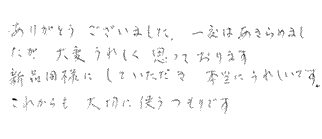 ありがとう ございました。一度はあきらめまし
たが 大変 うれしく 思っております
新品同様に していただき 本当に うれしいです。
これからも 大切に 使う つもりです